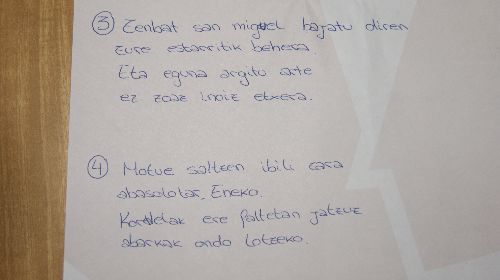 ③ Zenbat san miguel bajatu diren
zure estarritik behera.
Eta eguna argitu arte
ez zoaz inoiz etxera.
④ Motue saltzen ibili zara
abasolotar, Eneko.
Kordelak ere faltetan jatzuz
abarkak ondo lotzeko.